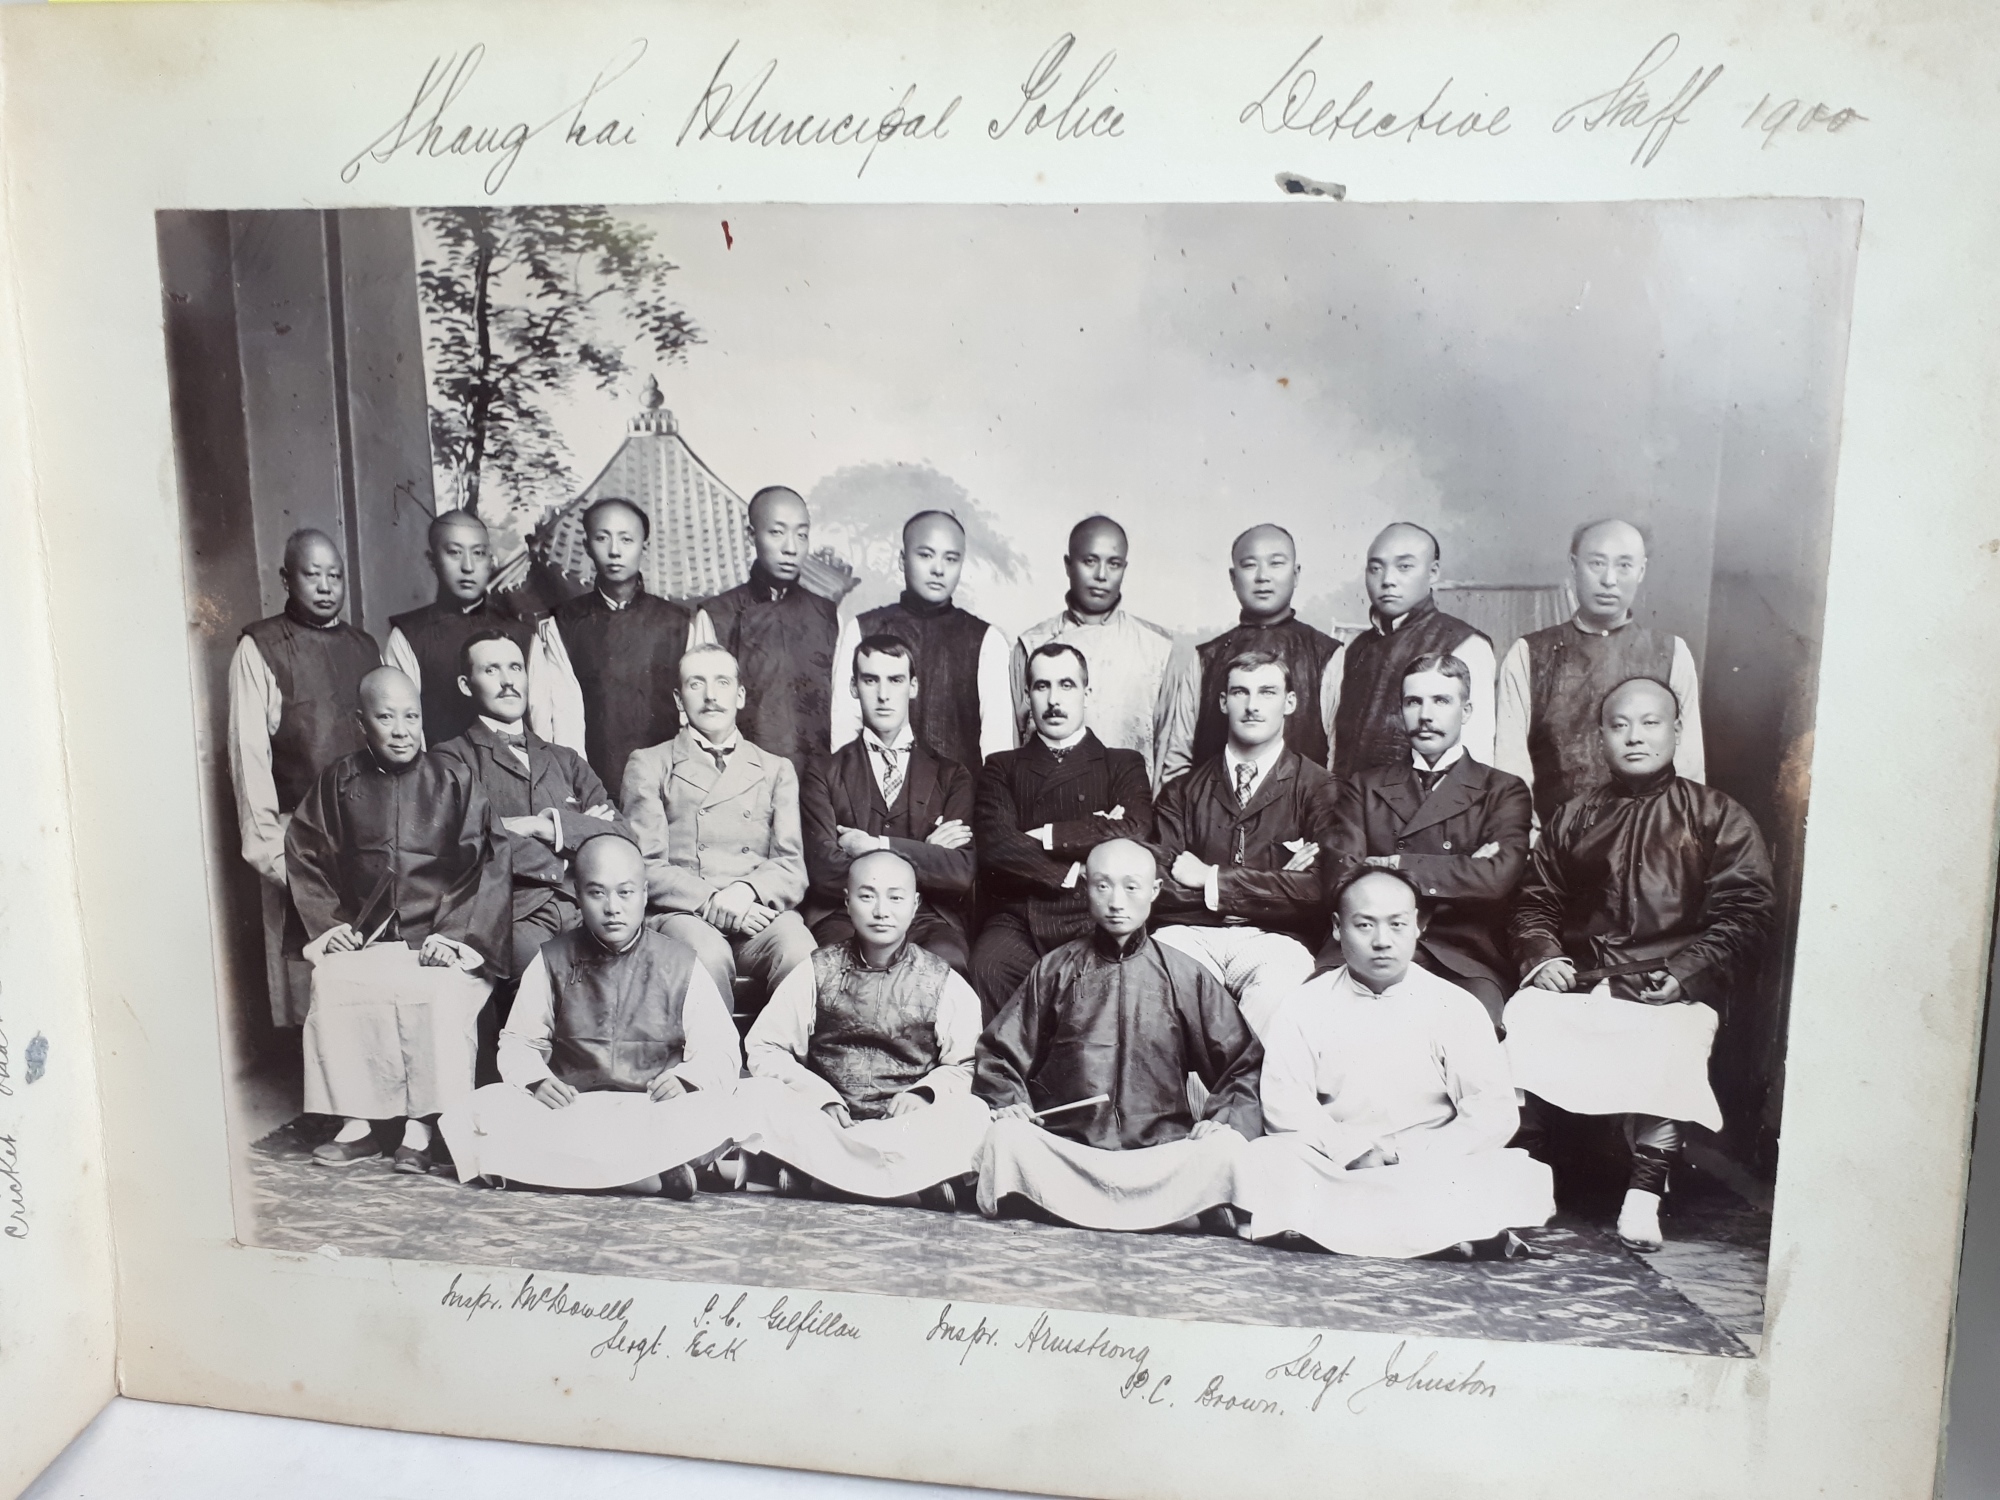 Shanghai Municipal Police Detective Staff 1900
Inspr. McDowell P. C. Gilfillan Inspr. Armstrong Sergt Johnston
Sergt. Eek P. C. Brown.
Cricket